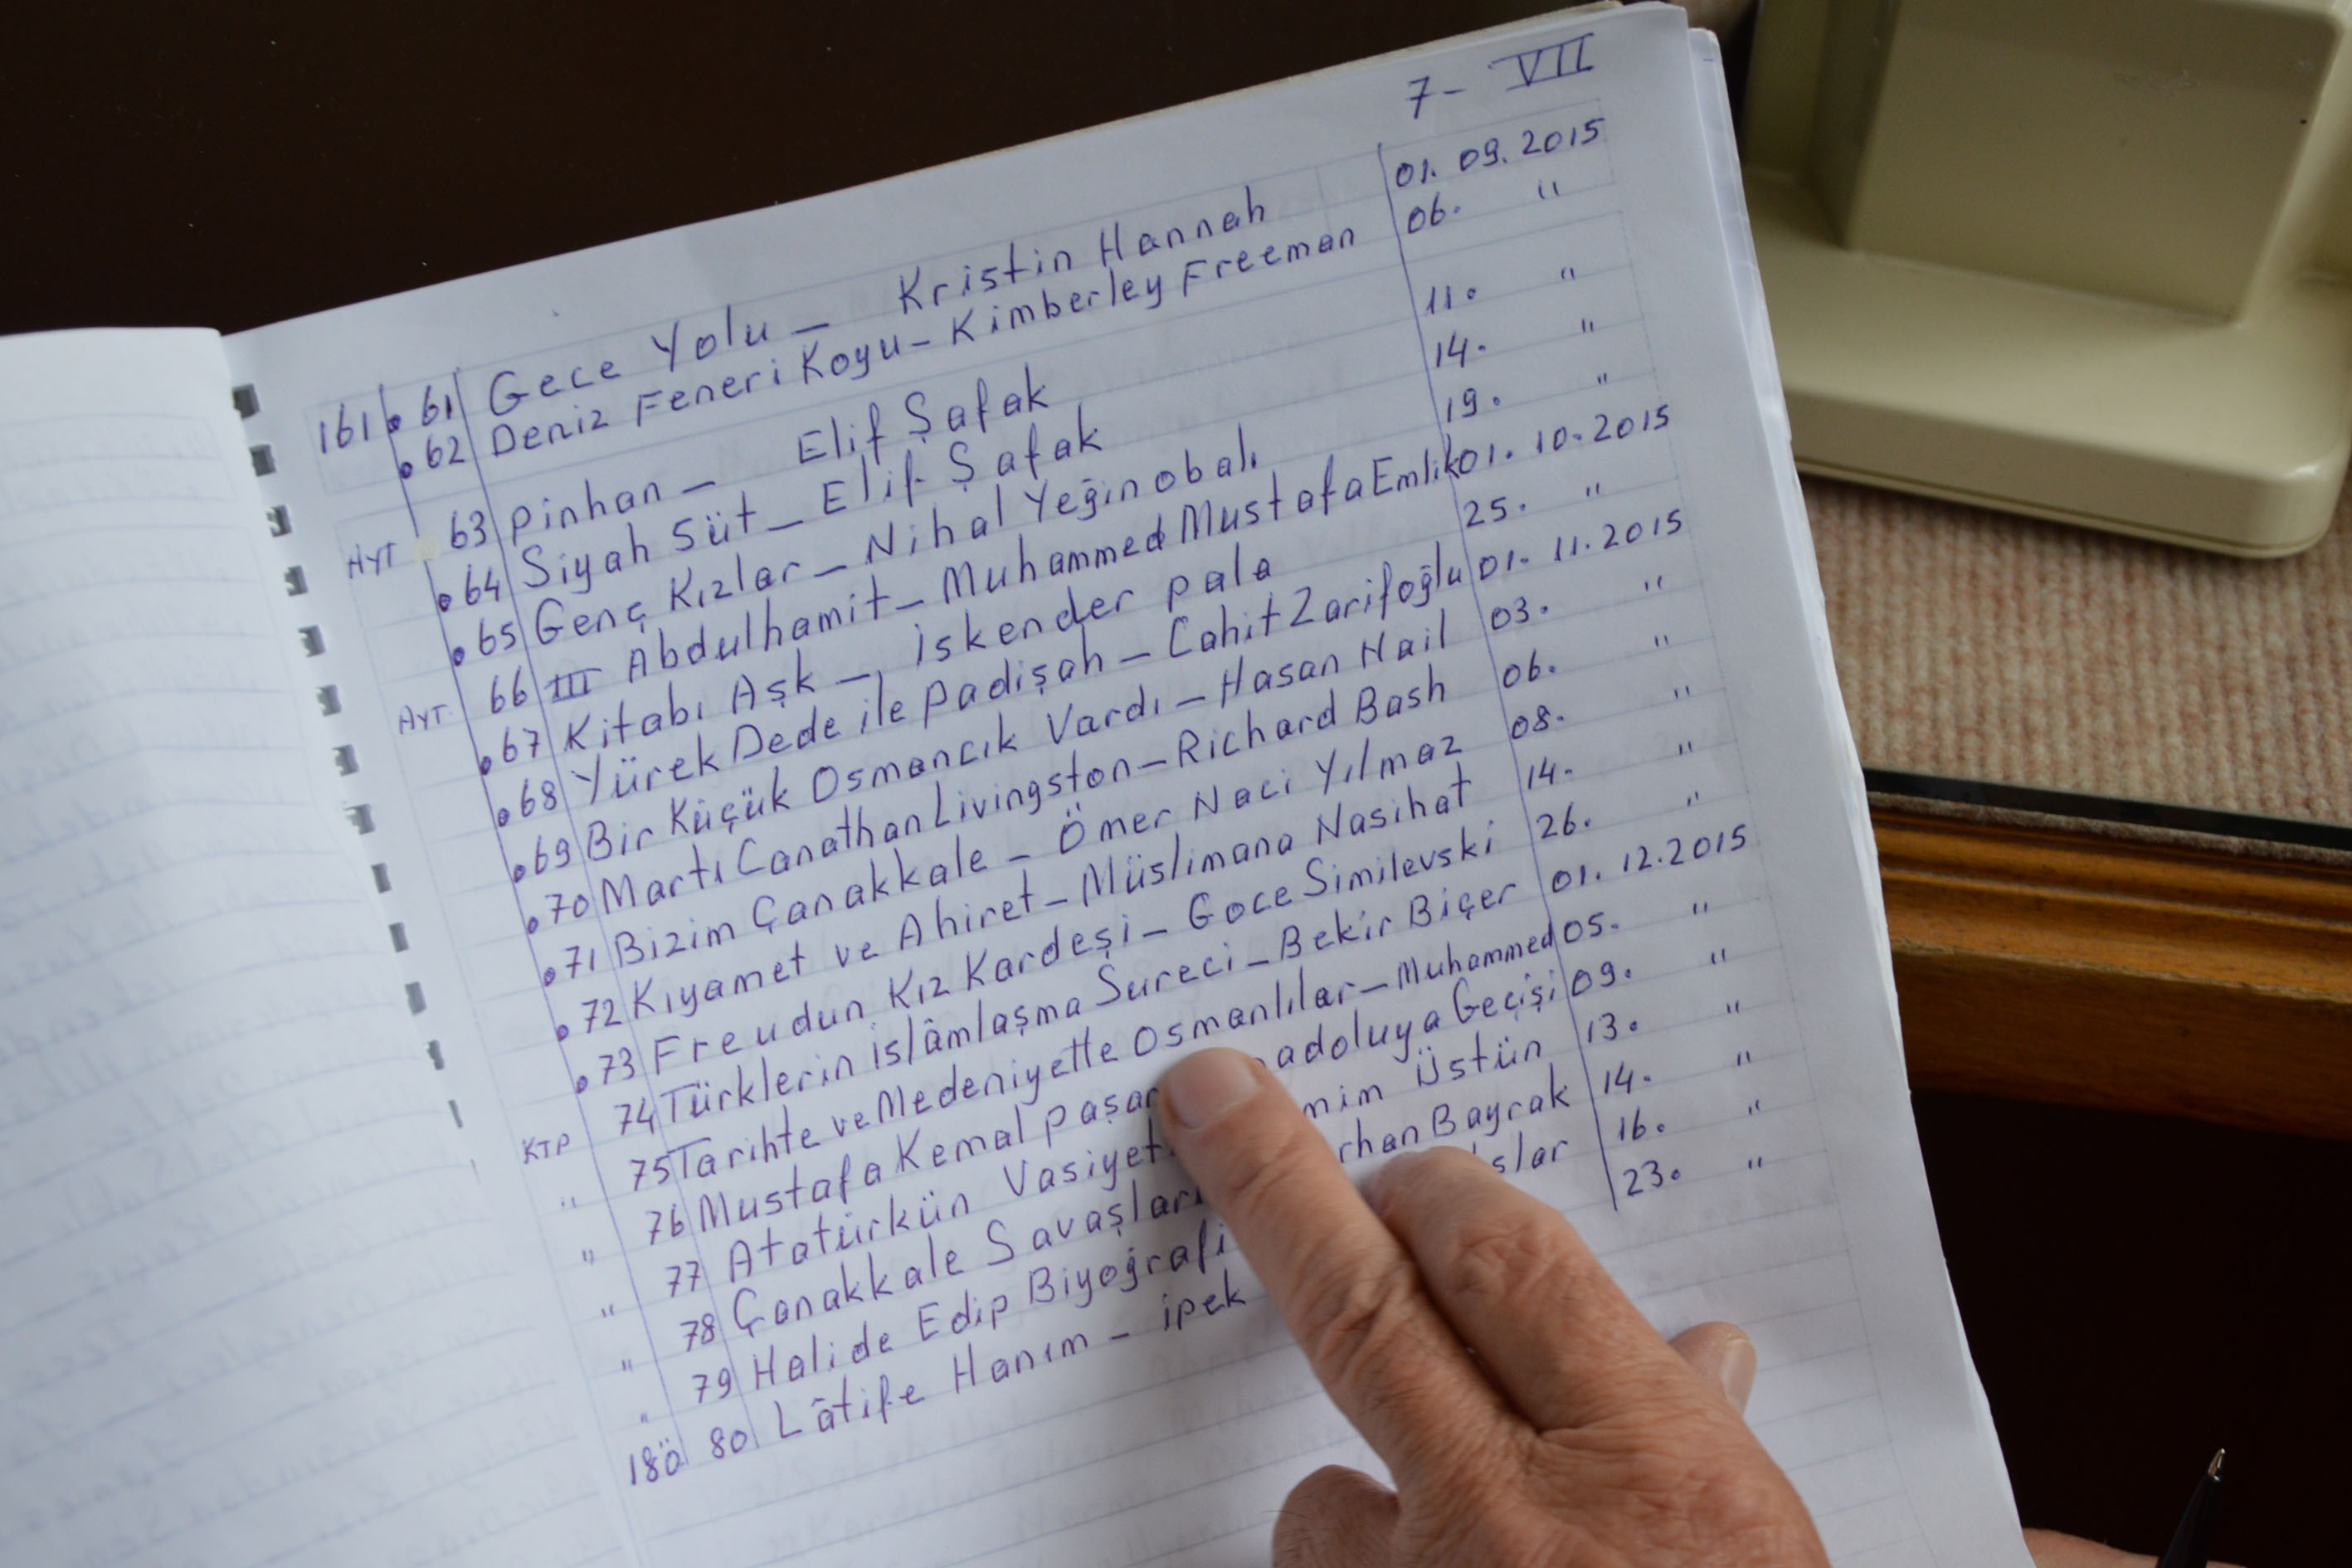 7- VII
161 • 61 Gece Yolu - Kristin Hannah 01. 09. 2015
• 62 Deniz Feneri Koyu - Kimberley Freeman 06. "
AYT 63 Pinhan - Elif Şafak 11. "
• 64 Siyah Süt - Elif Şafak 14. "
• 65 Genç Kızlar - Nihal Yeğinobalı 19. "
AYT 66 III Abdulhamit - Muhammed Mustafa Emlik 01. 10. 2015
• 67 Kitabı Aşk - İskender pala 25. "
• 68 Yürek Dede ile Padişah - Cahit Zarifoğlu 01. 11. 2015
• 69 Bir Küçük Osmancık Vardı - Hasan Nail 03. "
• 70 Martı Canathan Livingston - Richard Bash 06. "
• 71 Bizim Çanakkale - Ömer Naci Yılmaz 08. "
• 72 Kıyamet ve Ahiret - Müslimana Nasihat 14. "
• 73 Freudun Kız Kardeşi - Goce Similevski 26. "
KTP 74 Türklerin islâmlaşma Süreci - Bekir Biçer 01. 12. 2015
" 75 Tarihte ve Medeniyette Osmanlılar - Muhammed 05. "
" 76 Mustafa Kemal Paşa adoluya Geçişi 09. "
" 77 Atatürkün Vasiyet mim Üstün 13. "
" 78 Çanakkale Savaşları rhan Bayrak 14. "
" 79 Halide Edip Biyoğrafi şlar 16. "
180 80 Lâtife Hanım - ipek 23. "